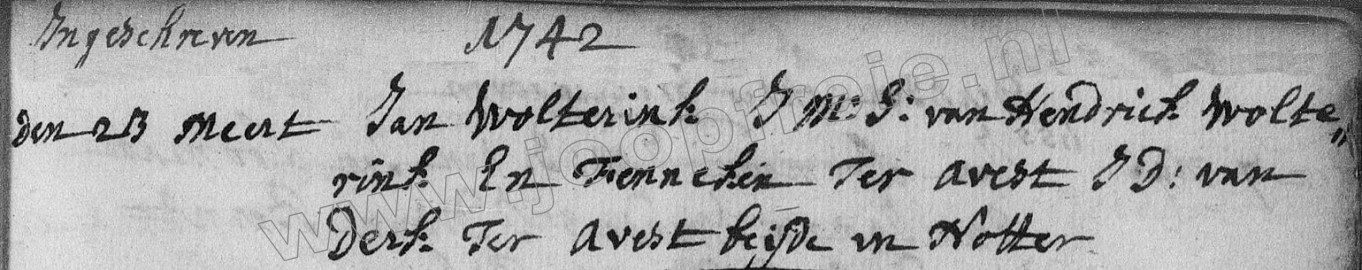 Ingeschreven 1742
den 23 Meert Jan Wolterink J M: S: van Hendrick Wolte„
rink En Fenneken Ter Avest J D: van
Derk Ter Avest beijde in Notter
www.joopfroie.nl